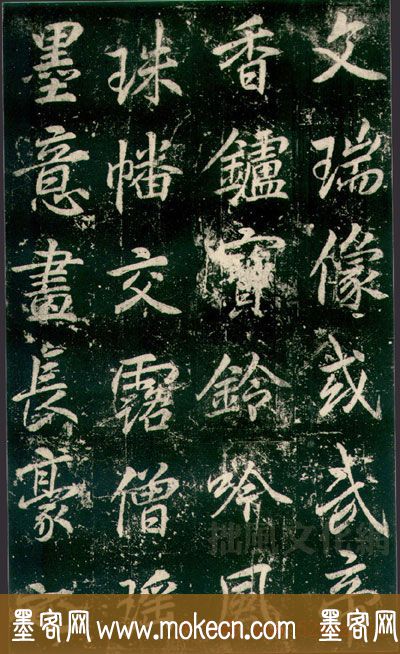 文瑞像或武帝
香鑪寶鈴吟風
珠幡交露僧瑤
墨意畫長豪
墨客网 www.mokecn.com 墨客网